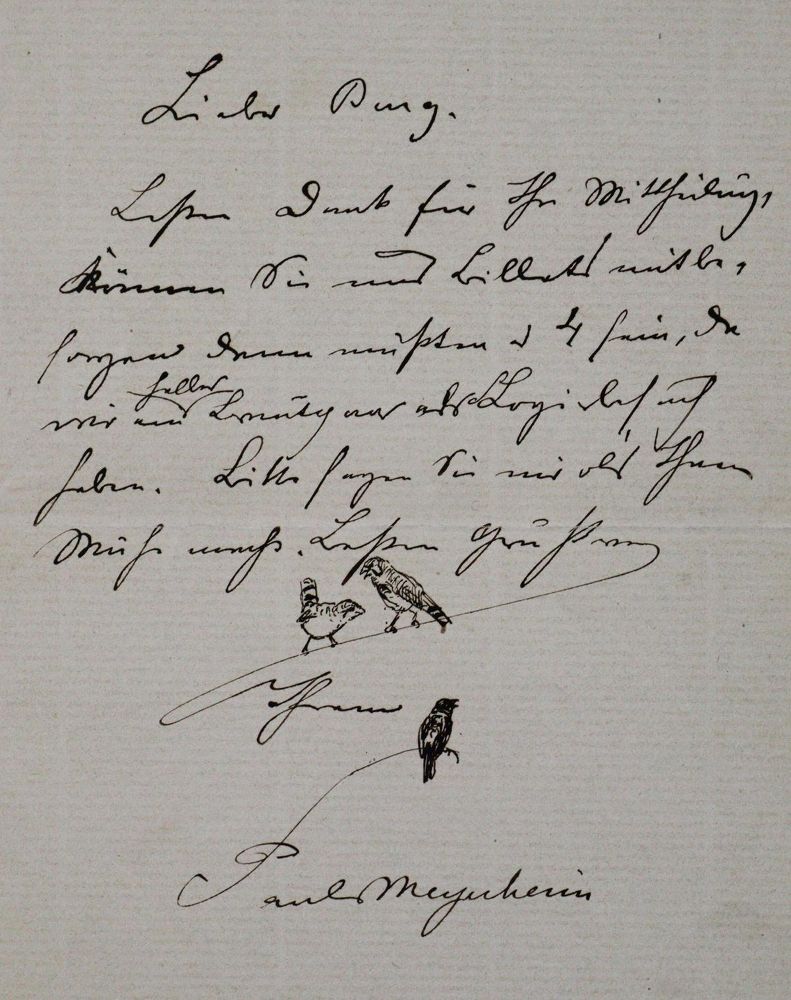 Lieber Burg.
Besten Dank für Ihre Mittheilung,
können Sie uns Billets mitbe-
sorgen dann müßten es 4 sein, da
wir ein Brautpaar als Logirbesuch
haben. Bitte sagen Sie mir ob's Ihnen
Mühe macht. Besten Gruß von
Ihrem
Paul Meyerheim